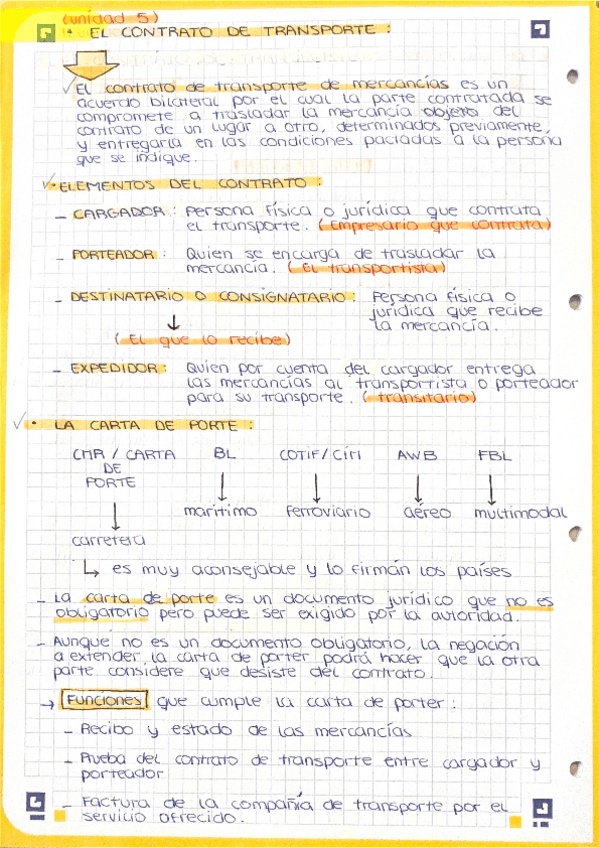 (unidad 5)
• EL CONTRATO DE TRANSPORTE :
✓ El contrato de transporte de mercancías es un
acuerdo bilateral por el cual la parte contratada se
compromete a trasladar la mercancía objeto del
contrato de un lugar a otro, determinados previamente,
y entregarla en las condiciones pactadas a la persona
que se indique.
✓ • ELEMENTOS DEL CONTRATO :
- CARGADOR : Persona física o jurídica que contrata
el transporte. (Empresario que contrata)
- PORTEADOR : Quien se encarga de trasladar la
mercancía. (El transportista)
- DESTINATARIO O CONSIGNATARIO : Persona física o
jurídica que recibe
la mercancía.
(El que lo recibe)
- EXPEDIDOR : Quien por cuenta del cargador entrega
las mercancías al transportista o porteador
para su transporte. (transitario)
✓ • LA CARTA DE PORTE :
CMR / CARTA BL COTIF / CIM AWB FBL
DE
PORTE
marítimo ferroviario aéreo multimodal
carretera
↳ es muy aconsejable y lo firmán los países
- La carta de porte es un documento jurídico que no es
obligatorio pero puede ser exigido por la autoridad.
- Aunque no es un documento obligatorio, la negación
a extender la carta de porter podrá hacer que la otra
parte considere que desiste del contrato.
→ Funciones que cumple la carta de porter :
- Recibo y estado de las mercancías
- Prueba del contrato de transporte entre cargador y
porteador
- Factura de la compañía de transporte por el
servicio ofrecido.